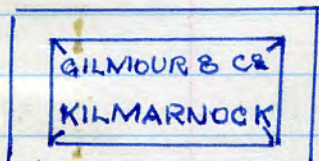 GILMOUR & Co
KILMARNOCK